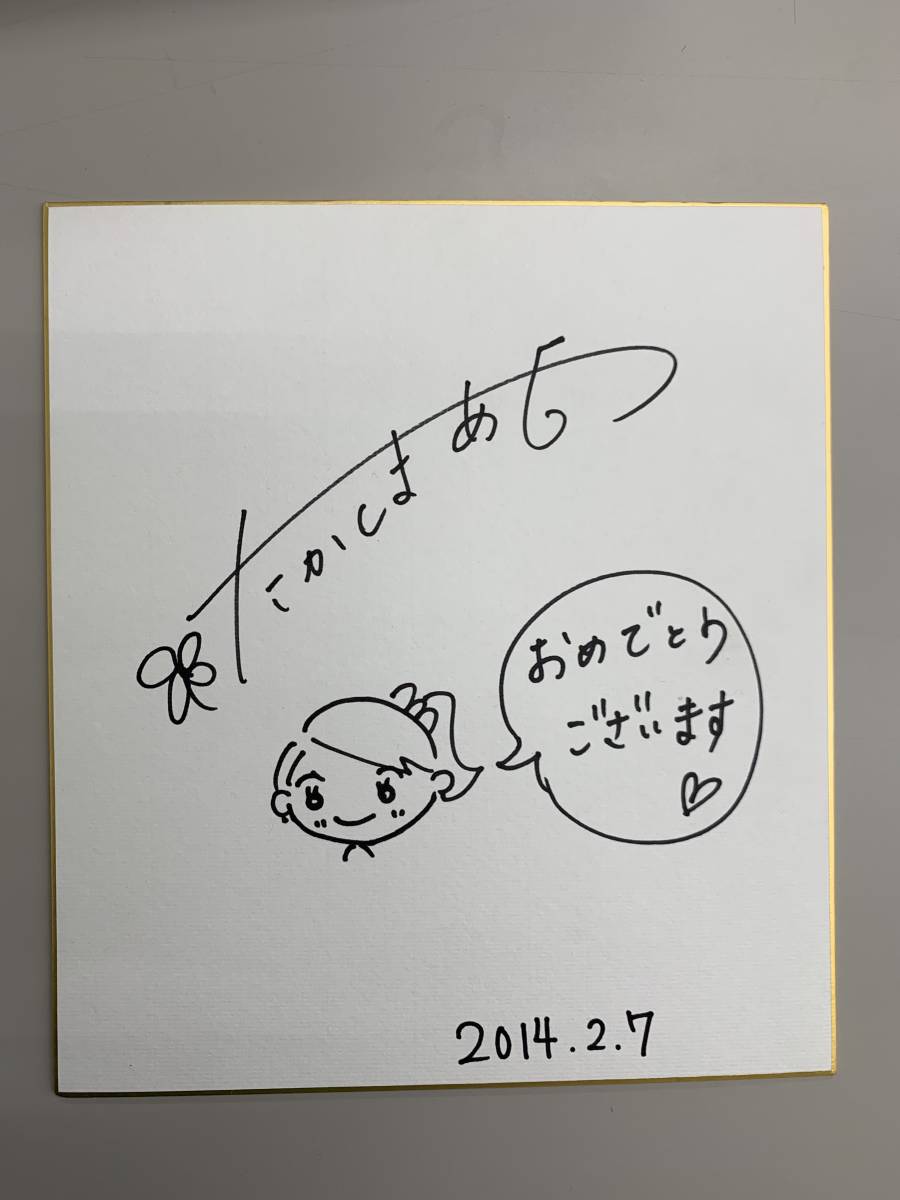 たかしま
おめでとう
ございます
♡
2014.2.7